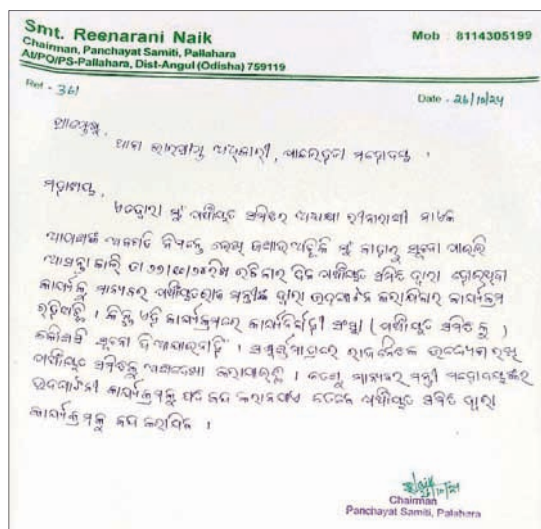 Smt. Reenarani Naik
Mob : 8114305199
Chairman, Panchayat Samiti, Pallahara
At/PO/PS-Pallahara, Dist-Angul (Odisha) 759119
Ref - 361
Date - 26/10/24
ପ୍ରାପ୍ତେଷୁ,
ଥାନା ଭାରପ୍ରାପ୍ତ ଅଧିକାରୀ, ପାଲଲହଡ଼ା ମହୋଦୟ ।
ମହାଶୟ,
ଏତଦ୍ଵାରା ମୁଁ ପଞ୍ଚାୟତ ସମିତିର ଅଧ୍ୟକ୍ଷା ରୀନାରାଣୀ ନାଏକ
ଆପଣଙ୍କ ଅବଗତି ନିମନ୍ତେ ଲେଖି ଜଣାଉଅଛିକି ମୁଁ ସୂଚନା ପାଇଲି
ଆସନ୍ତା କାଲି ତା ରବିବାର ଦିନ ପଞ୍ଚାୟତ ସମିତି ଦ୍ୱାରା
କାର୍ଯ୍ୟକୁ ମାନ୍ୟବର ପଞ୍ଚାୟତରାଜ ମନ୍ତ୍ରୀଙ୍କ ଦ୍ୱାରା ଉଦଘାଟନ କରାଯିବାର କାର୍ଯ୍ୟକ୍ରମ
ରହିଅଛି । କିନ୍ତୁ ଏହି କାର୍ଯ୍ୟକ୍ରମରେ କାର୍ଯ୍ୟନିର୍ବାହୀ ସଂସ୍ଥା (ପଞ୍ଚାୟତ ସମିତିକୁ)
କୌଣସି ସୂଚନା ଦିଆଯାଇନାହିଁ । ରାଜନୈତିକ ଉଦ୍ଦେଶ୍ୟ ରଖି
ପଞ୍ଚାୟତ ସମିତିକୁ ଅଣଦେଖା କରାଯାଉଛି । ତେଣୁ ମାନ୍ୟବର ମନ୍ତ୍ରୀ ମହୋଦୟଙ୍କର
ଉଦଘାଟନୀ କାର୍ଯ୍ୟକ୍ରମକୁ ଯଦି ବନ୍ଦ କରାନଯାଏ ତେବେ ପଞ୍ଚାୟତ ସମିତି ଦ୍ୱାରା
କାର୍ଯ୍ୟକ୍ରମକୁ ବନ୍ଦ କରାଯିବ ।
26/10/24
Chairman
Panchayat Samiti, Palahara